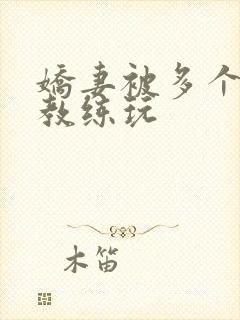 嬌妻被多个
教练玩
木笛